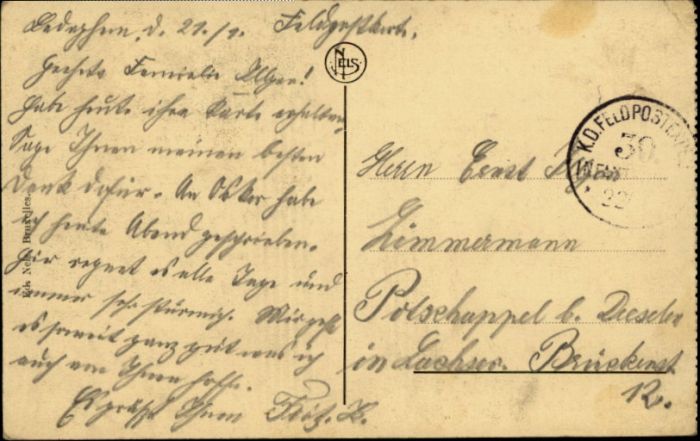 Ledeghem, d. 21./1. Feldpostkarte.
Geehrte Familie Ilgen!
Habe heute ihre Karte erhalten
Sage Ihnen meinen besten
Dank dafür. An Oskar habe
ich heute Abend geschrieben.
Hir regnet es alle Tage und
immer sehr stürmig. Mir geht
es soweit ganz gut was ich
auch von Ihnen hoffe.
Es grüßt Ihnen Fritz. H.
NELS
Éts Nels, Bruxelles.
K.D. FELDPOSTEXP.
30.
22
Herrn Ernst
Zimmermann
Potschappel b. Dresden
in Sachsen. Brückenst
12.